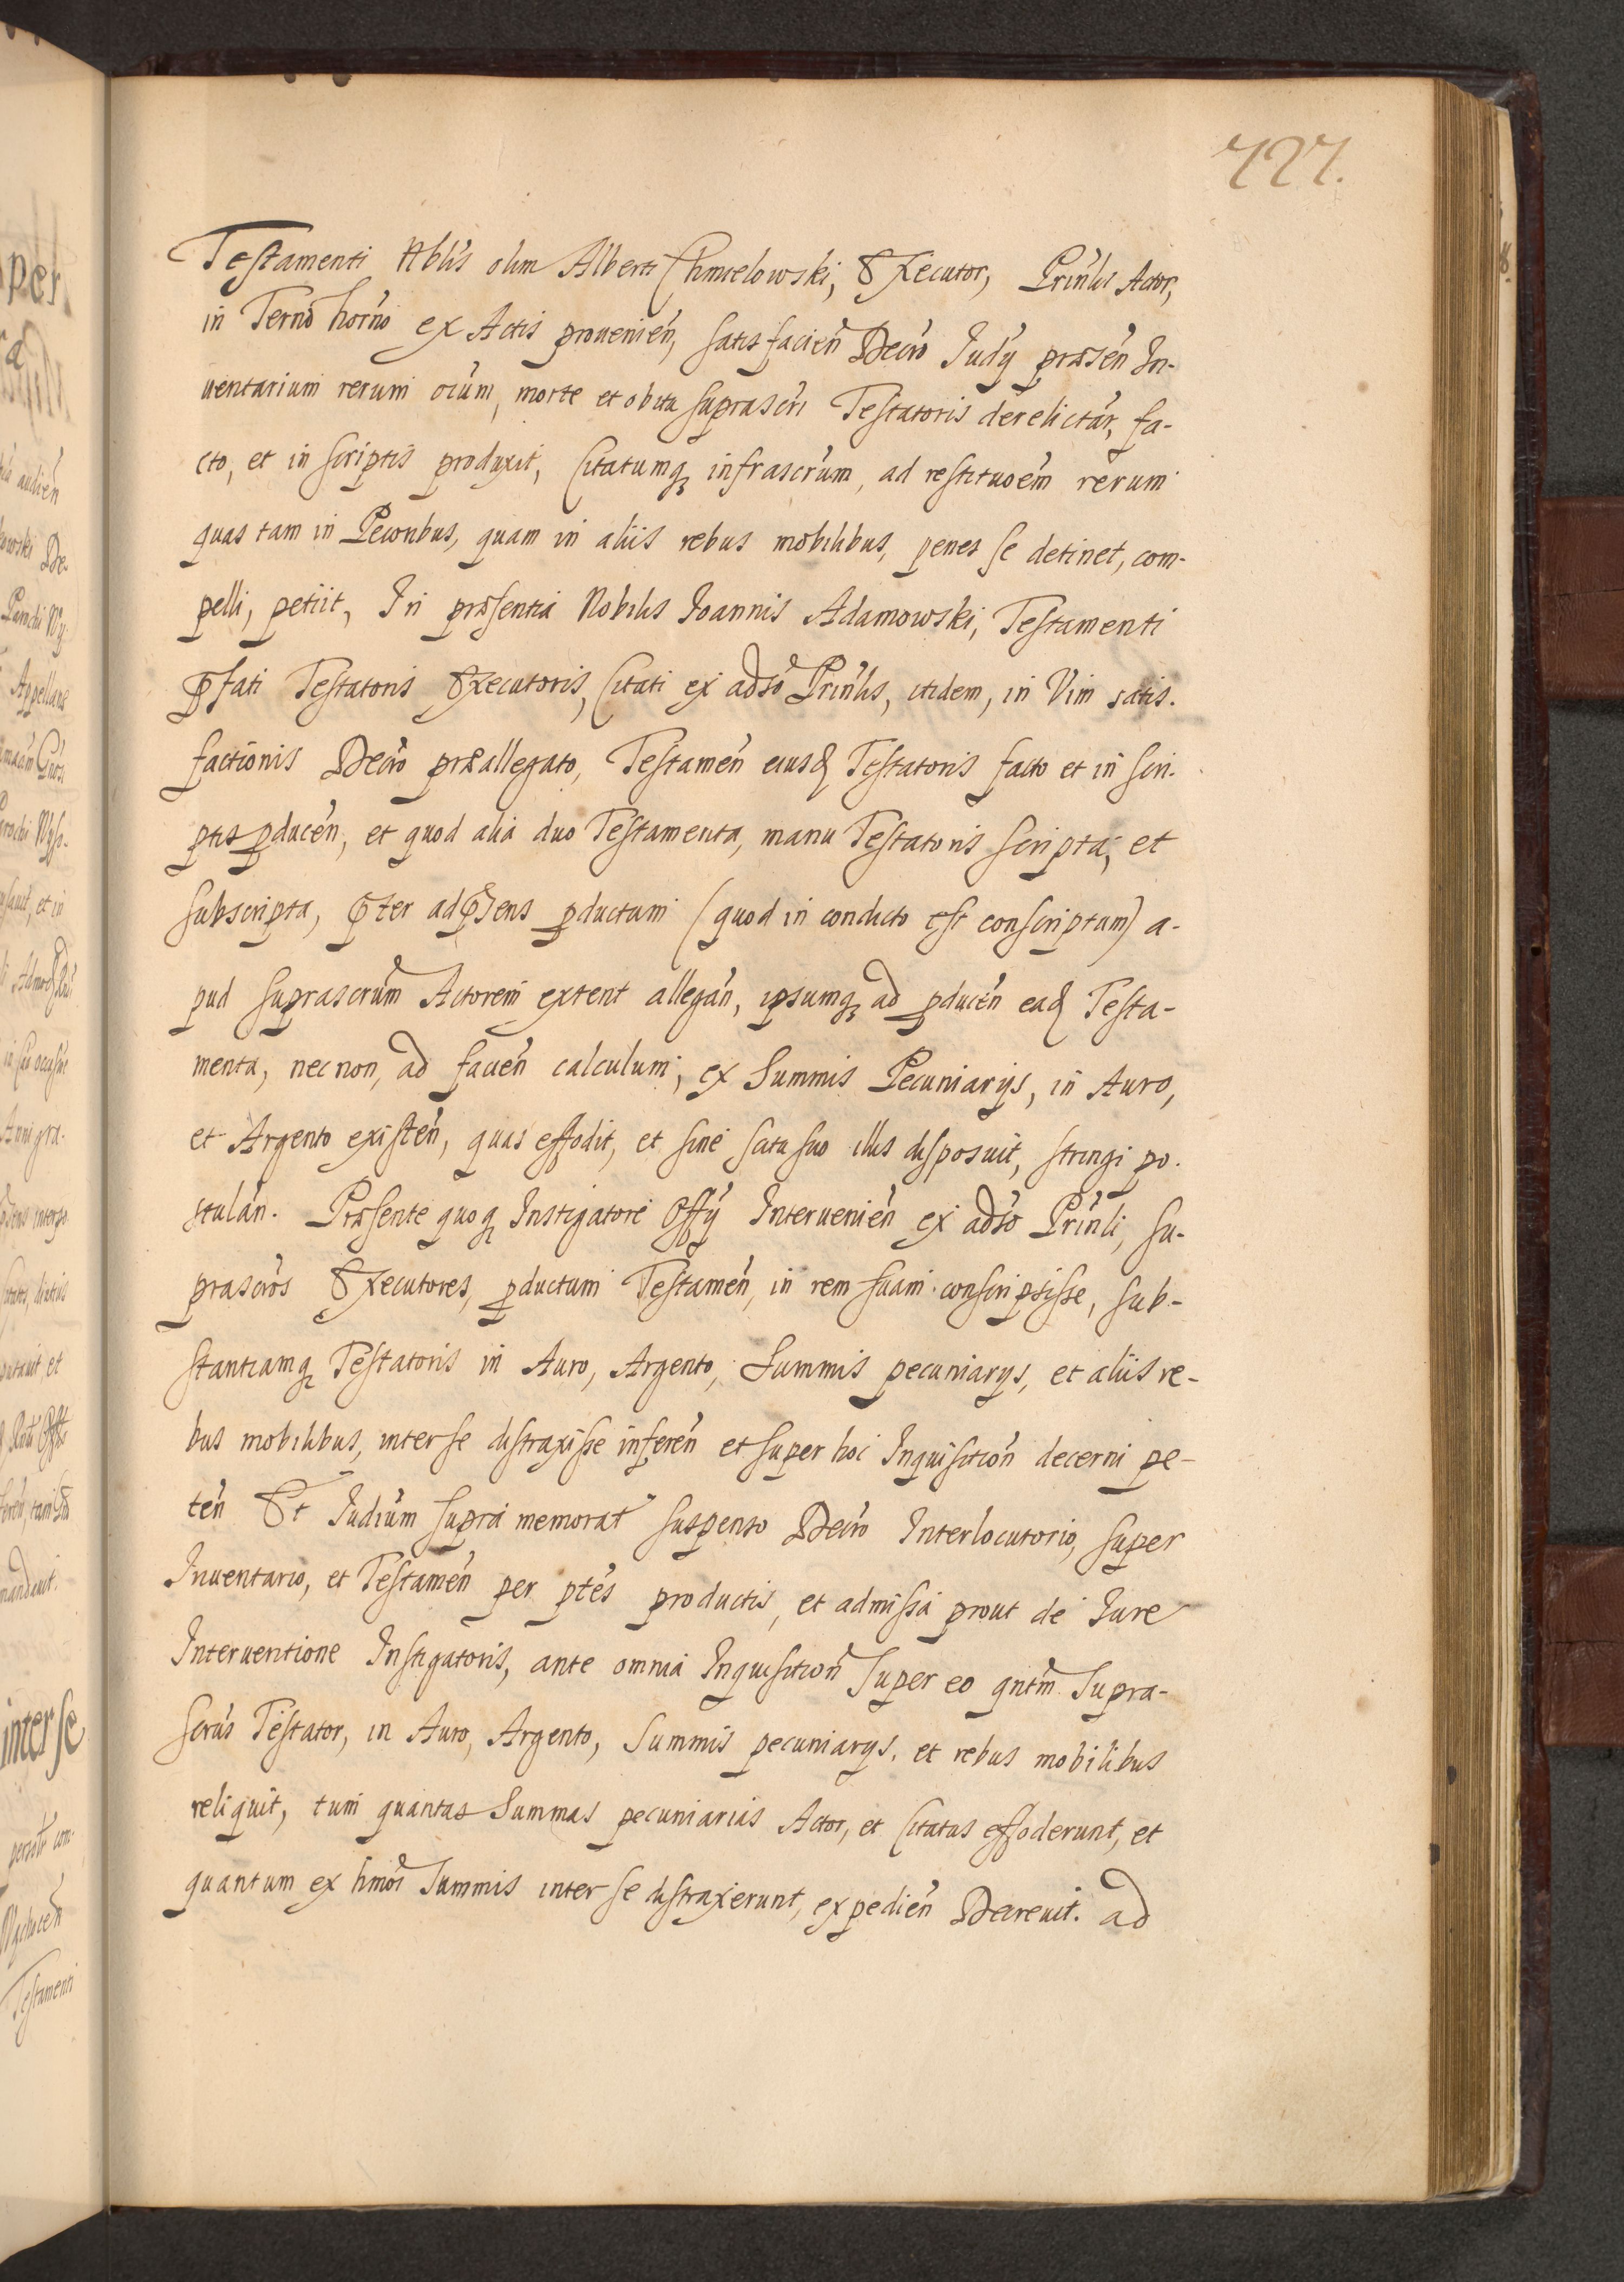 727.
Testamenti Nblis olim Alberti Chmielowski, Executor, Prinlis Actor,
in Terno horno ex Actis prouenien, satisfacien Decro Judÿ præsen In-
uentarium rerum oium, morte et obitu suprascri Testatoris derelictar, fa-
cto, et in scriptis produxit, Citatumq infrascrum, ad restituoem rerum
quas tam in Pecoribus, quam in aliis rebus mobilibus, penes se detinet, com-
pelli, petiit, In præsentia Nobilis Joannis Adamowski, Testamenti
Pfati Testatoris Executoris, Citati ex adso Prinlis, itidem, in Vim satis-
factionis Decro præallegato, Testamen eiusd Testatoris facto et in scri-
ptis pducen, et quod alia duo Testamenta, manu Testatoris scripta, et
subscripta, pter adpsens pductum (quod in condicto est conscriptum) a-
pud suprascrum Actorem extent allegan, ipsumq ad pducen ead Testa-
menta, nec non, ad facien calculum, ex Summis Pecuniarijs, in Auro,
et Argento existen, quas effodit, et sine scitu suo illis disposuit, stringi po-
stulan. Præsente quoq Instigatore Offÿ Interuenien ex adso Prinli, su-
prascros Executores, pductum Testamen, in rem suam conscripsisse, sub-
stantiamq Testatoris in Auro, Argento, Summis pecuniarijs, et aliis re-
bus mobilibus, inter se distraxisse inferen et super hoc Inquisition decerni pe-
ten Et Judium supra memorat suspenso Decro Interlocutorio, super
Inuentario, et Testamen per ptes productis, et admissa prout de Jure
Interuentione Instigatoris, ante omnia Inquisition super eo qntm supra-
scrus Testator, in Auro, Argento, Summis pecuniarijs, et rebus mobilibus
reliquit, tum quantas Summas pecuniarias Actor, et Citatus effoderunt, et
quantum ex hmoi Summis inter se distraxerunt, expedien Decreuit. ad